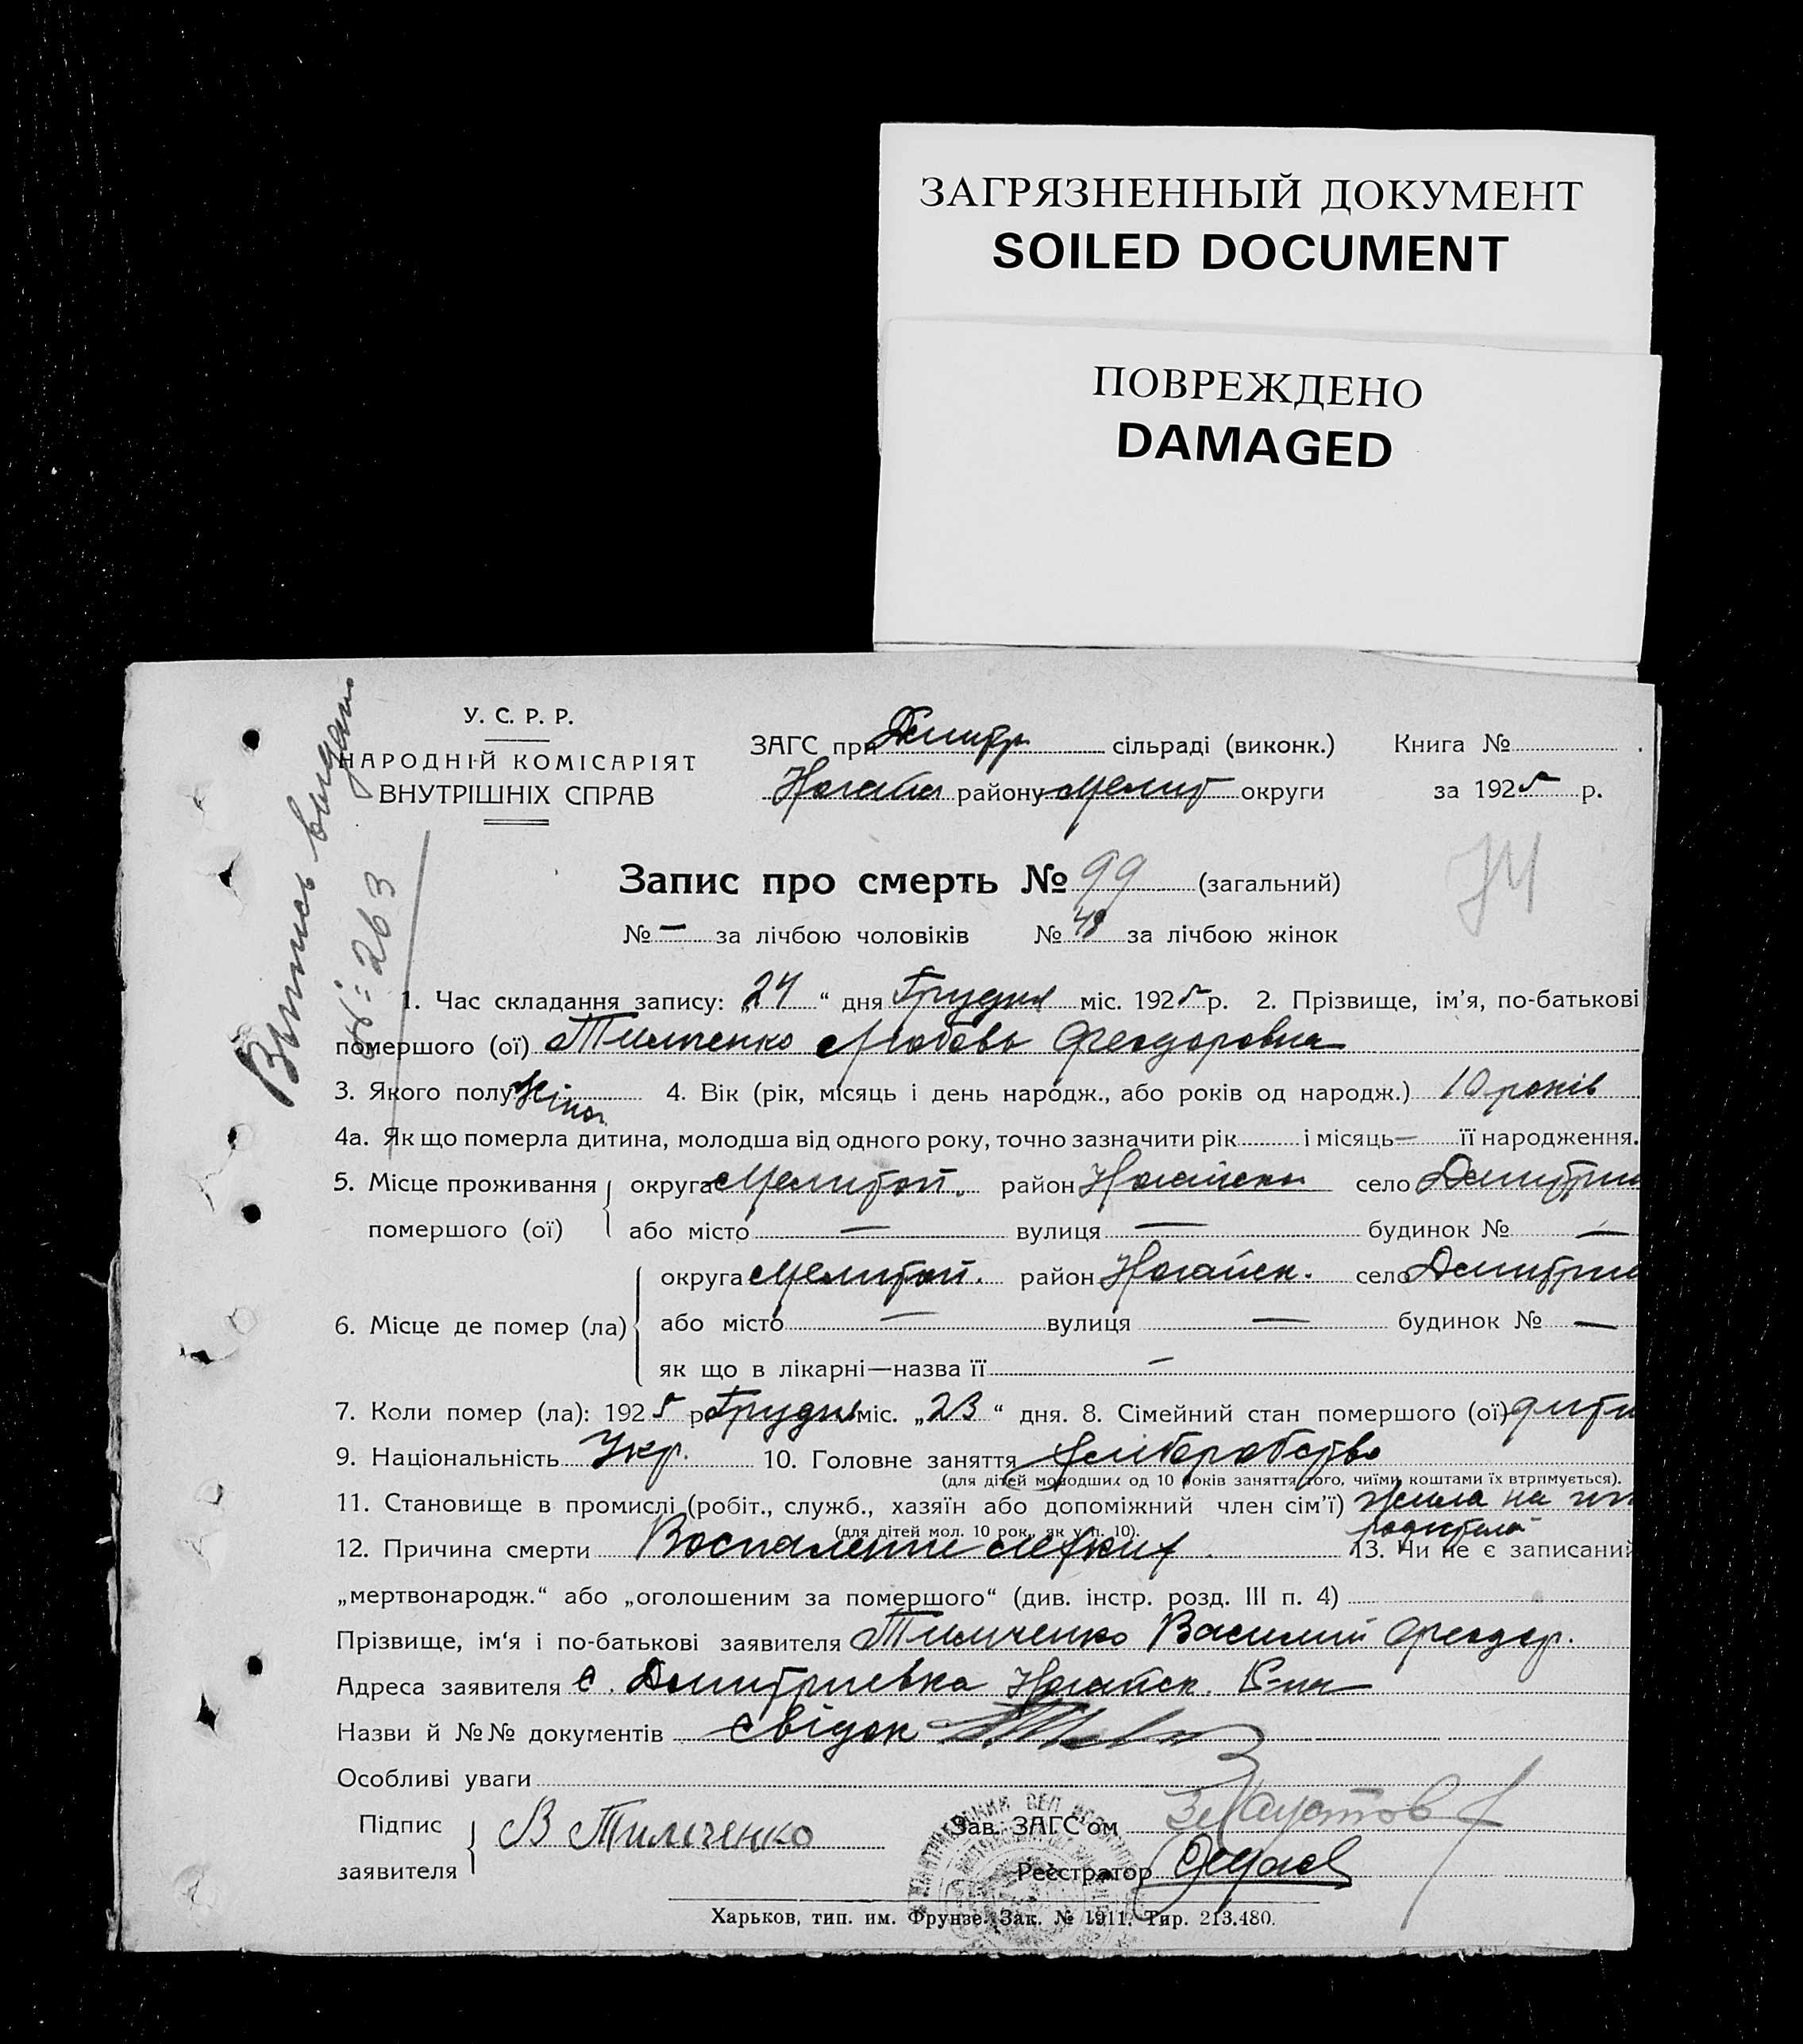 ЗАГРЯЗНЕННЫЙ ДОКУМЕНТ
SOILED DOCUMENT
ПОВРЕЖДЕНО
DAMAGED
Випись видан
№ 263
У. С. Р. Р.
НАРОДНІЙ КОМІСАРІЯТ
ВНУТРІШНІХ СПРАВ
ЗАГС при Дмитр сільраді (виконк.) Книга №
Ногайск району Мелит округи за 1925 р.
Запис про смерть № 99 (загальний)
№ — за лічбою чоловіків № 49 за лічбою жінок
1. Час складання запису: „24“ дня Грудня міс. 1925 р. 2. Прізвище, ім’я, по-батькові
помершого (ої) Тимченко Любовь Феодоровна
3. Якого полу Жіноч 4. Вік (рік, місяць і день народж., або років од народж.) 10 років
4а. Як що померла дитина, молодша від одного року, точно зазначити рік і місяць — її народження.
5. Місце проживання помершого (ої) округа Мелитоп. район Ногайськ село Дмитрии
або місто — вулиця — будинок № —
6. Місце де помер (ла) округа Мелитоп. район Ногайск. село Дмитрии
або місто — вулиця — будинок № —
як що в лікарні—назва її —
7. Коли помер (ла): 1925 р Грудня міс. „23“ дня. 8. Сімейний стан помершого (ої) дити
9. Національність Укр. 10. Головне заняття Хліборобство
(для дітей молодших од 10 років заняття того, чиїми коштами їх втримується).
11. Становище в промислі (робіт., служб., хазяїн або допоміжний член сім’ї) жила на
родителей
(для дітей мол. 10 рок., як у п. 10).
12. Причина смерти Воспаление легких 13. Чи не є записаний
„мертвонародж.“ або „оголошеним за помершого“ (див. інстр. розд. III п. 4)
Прізвище, ім‘я і по-батькові заявителя Тимченко Василий Феодор.
Адреса заявителя с. Дмитриевка Ногайск. Р-на
Назви й №№ документів свідок
Особливі уваги
Підпис заявителя В Тимченко
Зав. ЗАГС‘ом
Реєстратор
Харьков, тип. им. Фрунзе. Зак. № 1911. Тир. 213.480.